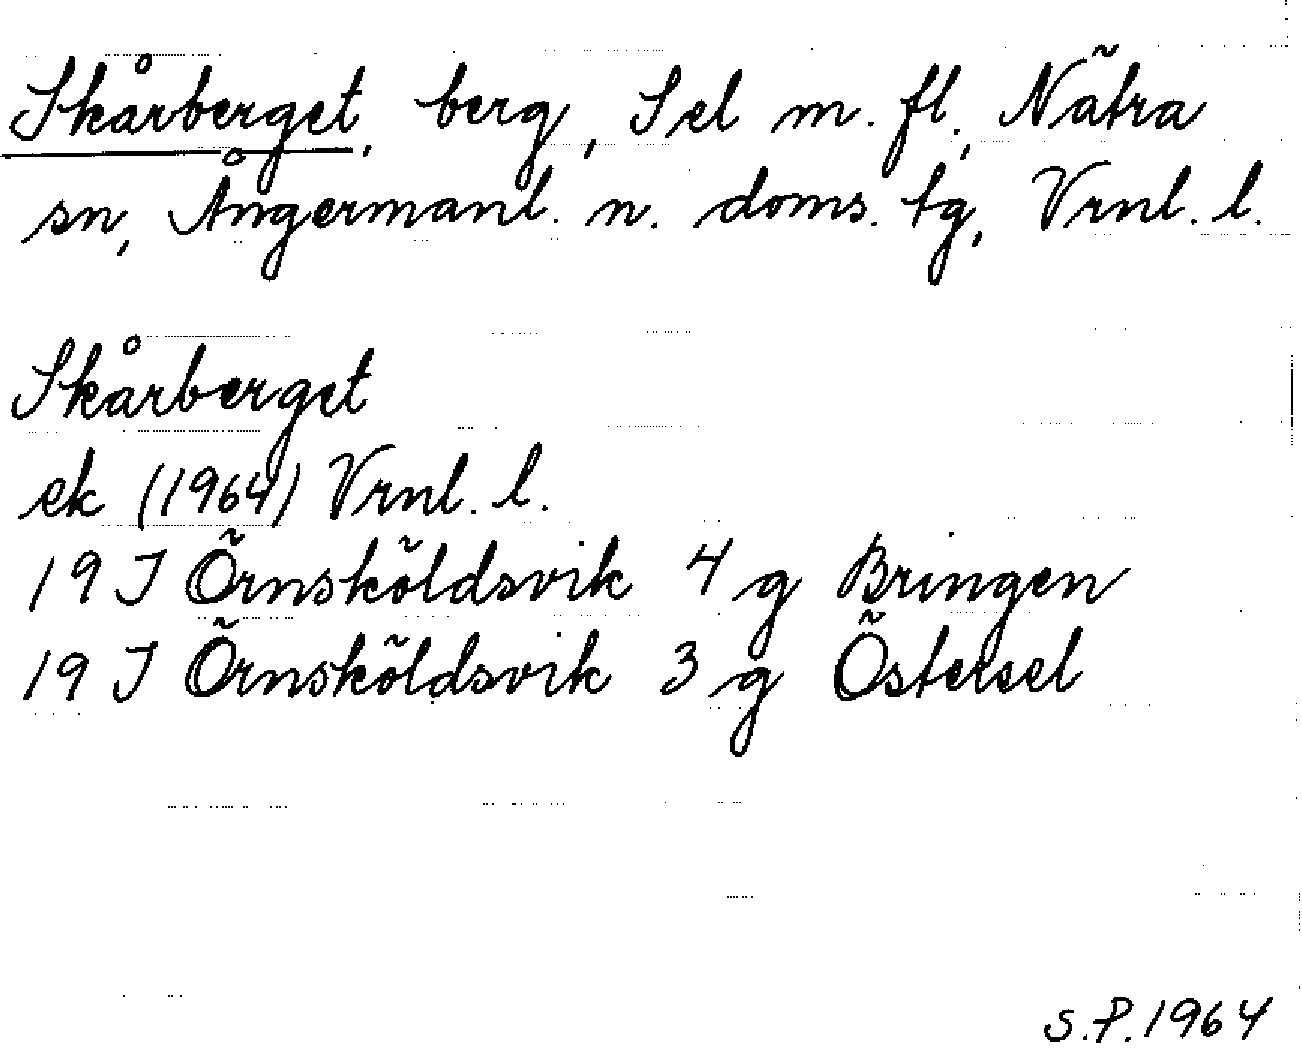 Skårberget, berg, Sel m. fl., Nätra
sn, Ångermanl. n. doms. tg, Vrnl. l.
Skårberget
ek (1964) Vrnl. l.
19 J Örnsköldsvik 4 g Bringen
19 J Örnsköldsvik 3 g Östersel
S.P. 1964